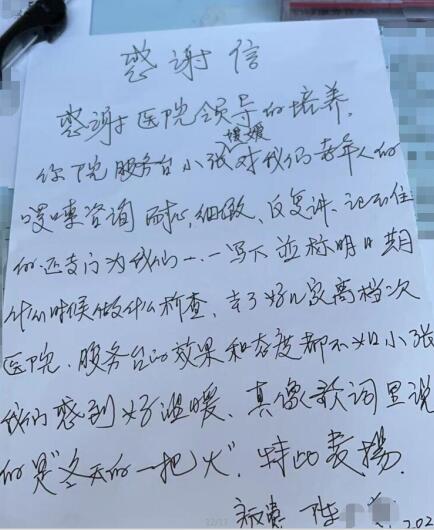 感谢信
感谢医院领导的培养,
你下院服务台小张姑娘对我们老年人的
唠嗦咨询耐心,细致,反复讲、记不住
的还专门为我们一一写下並标明日期
什么时候做什么检查,去了好几家高档次
医院、服务台的效果和态度都不如小张
我们感到好温暖、真像歌词里说
的是"冬天的一把火",特此表揚.
陈
202
12/13